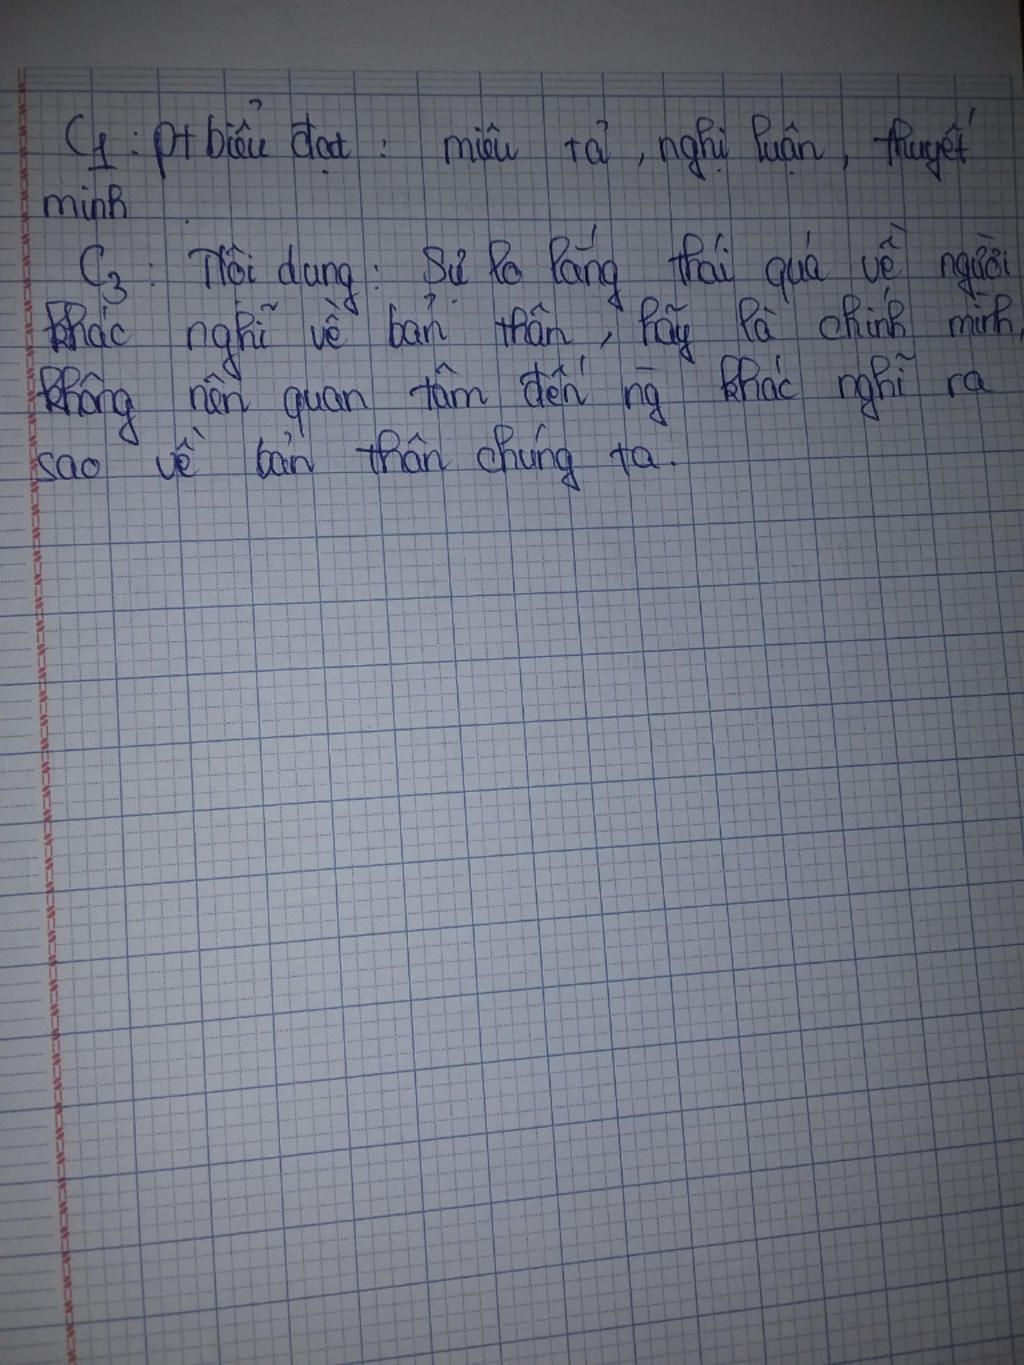 C1: pt biểu đạt: miêu tả, nghị luận, thuyết
minh
C3: Nội dung: Sự lo lắng thái quá về người
khác nghĩ về bản thân, hãy là chính mình,
không nên quan tâm đến ng khác nghĩ ra
sao về bản thân chúng ta.